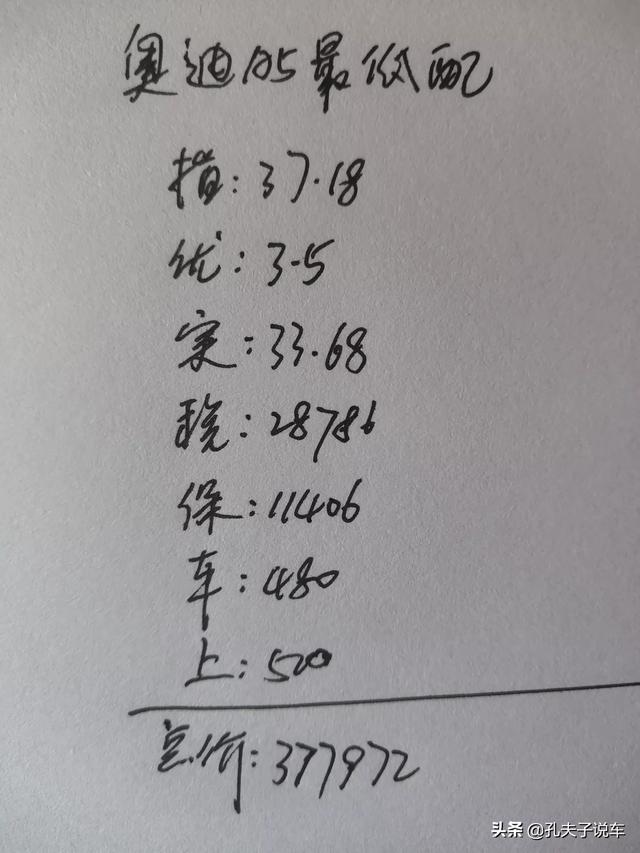 奥迪A5最低配
指:37.18
优:3.5
实:33.68
税:28786
保:11406
车:480
上:520
总价:377972
头条 @孔夫子说车